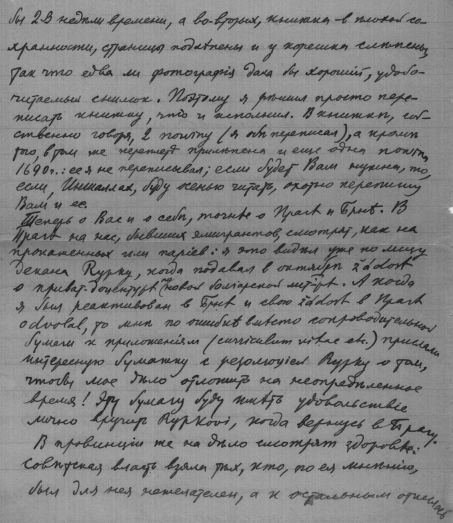 бы 2-3 недѣли времени, а во вторых, книжка в плохой со-
хранности, страницы подклеены и у корешка слѣплены,
так что едва ли фотографія дала бы хорошій, удобо-
читаемый снимок. Поэтому я рѣшил просто пере-
писать книжку, что и исполнил. В книжкѣ, соб-
ственно говоря, 2 (я обѣ переписал), а кромѣ
того, в том же переплетѣ приклеена и еще одна
1690 г.: ее я не переписывал; если будет Вам нужна, то,
если, буду осенью читать, охотно перепишу
Вам и ее.
Теперь о Вас и о себѣ, точнѣе о Прагѣ и Брнѣ. В
Прагѣ на нас, бывших эмигрантов, смотрят, как на
прокаженных или паріев: я это видѣл уже по лицу
декана Rypky, когда подавал в октябрѣ žádost
о приват-доцентурѣ (новая болгарская). А когда
я был реактивован в Брнѣ и свою žádost в Прагѣ
odvolal, то мнѣ по ошибкѣ вмѣсто сопроводительной
бумаги к приложеніям (curriculum vitae etc.) прислали
интересную бумажку с резолюціей Rypky о том,
чтобы мое дѣло отложить на неопредѣленное
время! Эту бумагу буду имѣть удовольствіе
лично вручить Rypkovi, когда вернусь в Прагу.
В провинціи же на дѣло смотрят здоровѣе:
совѣтская власть взяла тѣх, кто, по ея мнѣнію,
был для нея нежелателен, а к остальным